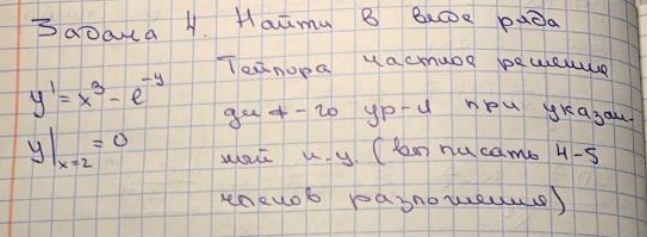 Задача 4. Найти в виде ряда
Тейлора частное решение
y' = x³ - e^{-y}
диф-го ур-я при указан-
y|_{x=2} = 0
ной н.у. (выписать 4-5
членов разложения)